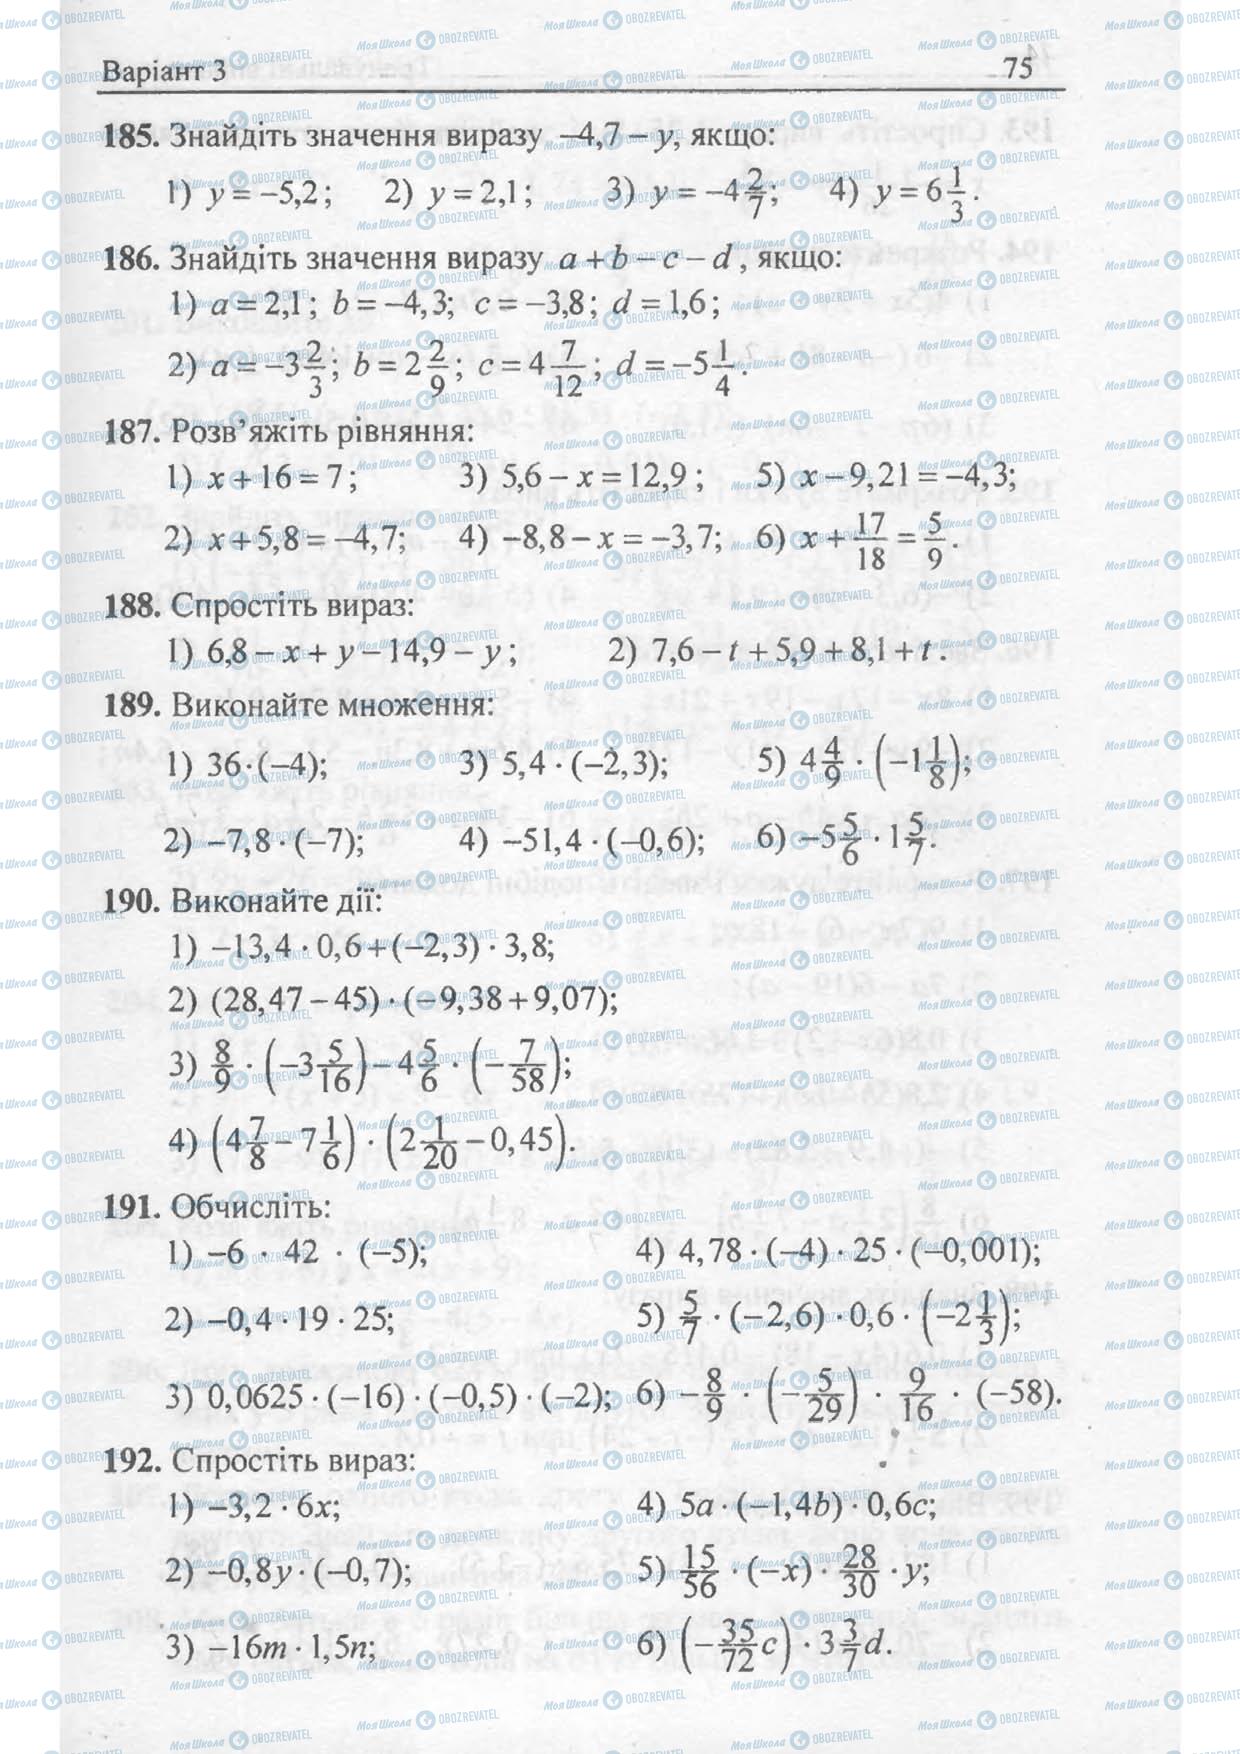 Варіант 3 75
185. Знайдіть значення виразу –4,7 – y, якщо:
1) y = –5,2; 2) y = 2,1; 3) y = –4 2/7; 4) y = 6 1/3.
186. Знайдіть значення виразу a + b – c – d, якщо:
1) a = 2,1; b = –4,3; c = –3,8; d = 1,6;
2) a = –3 2/3; b = 2 2/9; c = 4 7/12; d = –5 1/4.
187. Розв’яжіть рівняння:
1) x + 16 = 7; 3) 5,6 – x = 12,9; 5) x – 9,21 = –4,3;
2) x + 5,8 = –4,7; 4) –8,8 – x = –3,7; 6) x + 17/18 = 5/9.
188. Спростіть вираз:
1) 6,8 – x + y – 14,9 – y; 2) 7,6 – t + 5,9 + 8,1 + t.
189. Виконайте множення:
1) 36 · (–4); 3) 5,4 · (–2,3); 5) 4 4/9 · (–1 1/8);
2) –7,8 · (–7); 4) –51,4 · (–0,6); 6) –5 5/6 · 1 5/7.
190. Виконайте дії:
1) –13,4 · 0,6 + (–2,3) · 3,8;
2) (28,47 – 45) · (–9,38 + 9,07);
3) 8/9 · (–3 5/16) – 4 5/6 · (–7/58);
4) (4 7/8 – 7 1/6) · (2 1/20 – 0,45).
191. Обчисліть:
1) –6 · 42 · (–5); 4) 4,78 · (–4) · 25 · (–0,001);
2) –0,4 · 19 · 25; 5) 5/7 · (–2,6) · 0,6 · (–2 1/3);
3) 0,0625 · (–16) · (–0,5) · (–2); 6) –8/9 · (–5/29) · 9/16 · (–58).
192. Спростіть вираз:
1) –3,2 · 6x; 4) 5a · (–1,4b) · 0,6c;
2) –0,8y · (–0,7); 5) 15/56 · (–x) · 28/30 · y;
3) –16m · 1,5n; 6) (–35/72 c) · 3 3/7 d.
МояШкола OBOZREVATEL